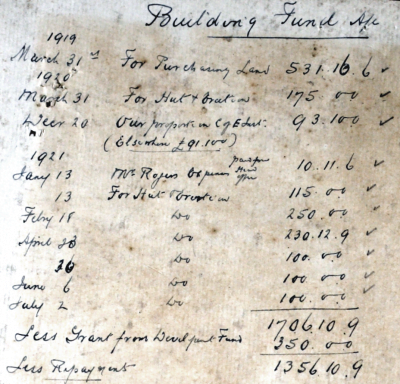 Building Fund A/c
1919
March 31st For Purchasing Land 531.16.6 ✓
1920
March 31 For Hut & Erection 175.00 ✓
Decr 20 Our proportion 93.10.0 ✓
(Elsenham £91.10.0)
1921
Jany 13 Mr Rogers Expenses 10.11.6 ✓
13 For Hut & Erection 115.00 ✓
Febry 18 Do 250.00 ✓
April 23 Do 230.12.9 ✓
26 Do 100.00 ✓
June 6 Do 100.00 ✓
July 2 Do 100.00 ✓
1706.10.9
Less Grant from Develpent Fund 350.00
Less Repayments 1356.10.9